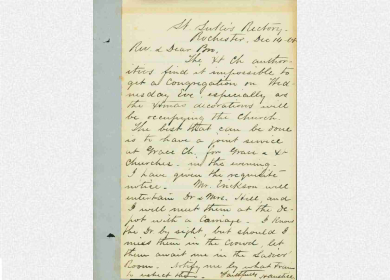 St. Luke's Rectory,
Rochester, Dec 14.
Rev. & Dear Bro.
The Xt Ch author-
ities find it impossible to
get a Congregation on Wed
nesday Eve especially as
the Xmas decorations will
be occupying the Church.
The best that can be done
is to have a joint service
at Grace Ch. for Grace & Xt
Churches. in the evening.
I have given the requisite
notice. Mr. Erickson will
entertain Dr & Mrs. Hill, and
I will meet them at the De-
pot with a Carriage. I know
the Dr by sight, but should I
miss them in the Crowd, let
them await me in the Ladies'
Room. Notify me by what Train
to expect them. Faithfully